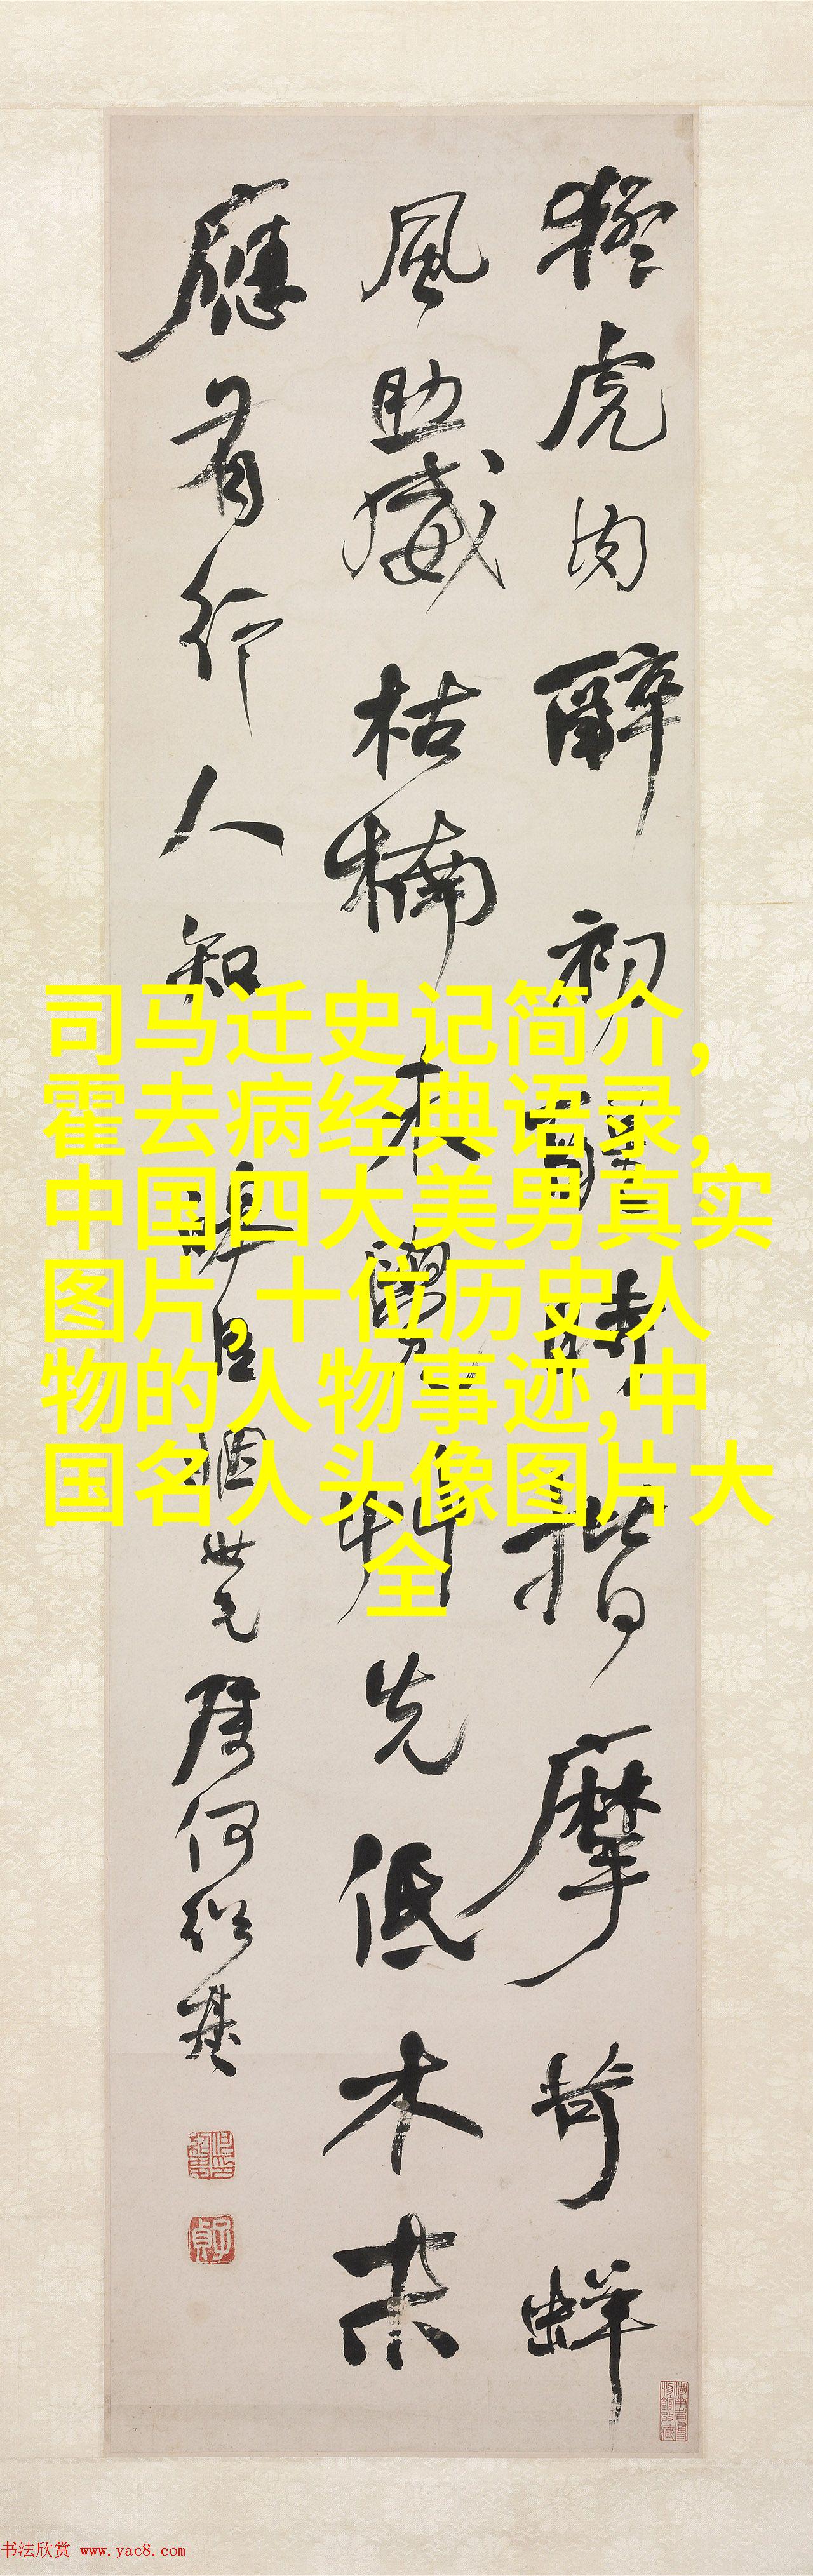 猛虎肉醉初醒時揩摩苛蛘
風助威枯楠未先低木末
應有行人知
世兄屬何紹基
司马迁史记简介,
霍去病经典语录,
中国四大美男真实
图片,十位历史人
物的人物事迹,中
国名人头像图片大
全
书法欣赏 www.yac8.com